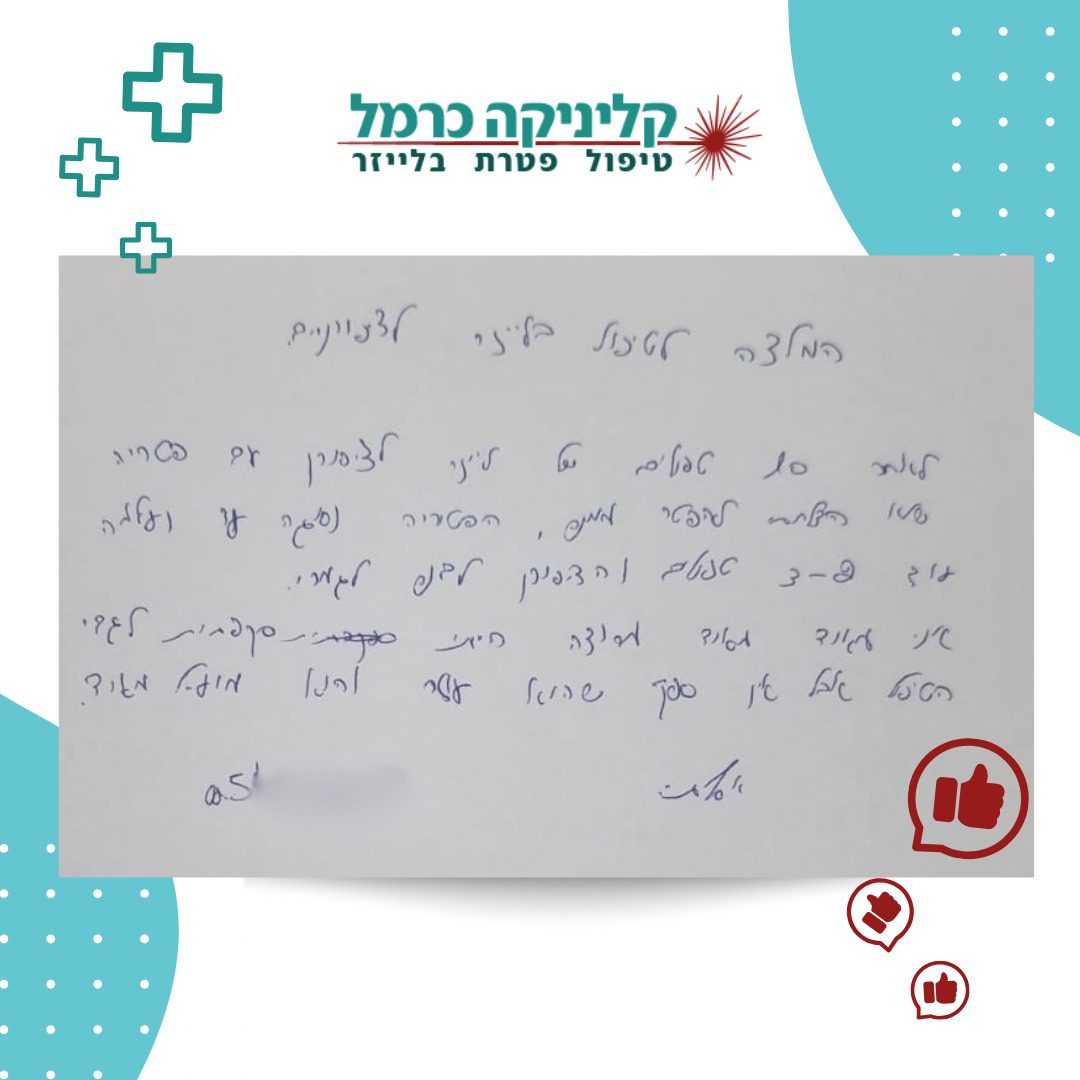 קליניקה כרמל
טיפול פטרת בלייזר
המלצה לטיפול בלייזר לציפורניים.
לאחר טפולים של לייזר לציפורן עם פטריה
שלא הצלחתי להפטר ממנה, הפטריה נסוגה עד
עוד 2-3 טפולים והציפורן לגמרי.
אני מאוד מרוצה הייתי סקפטית לגבי
הטיפול אבל אין ספק שהוא עוזר והנו מועיל מאוד.